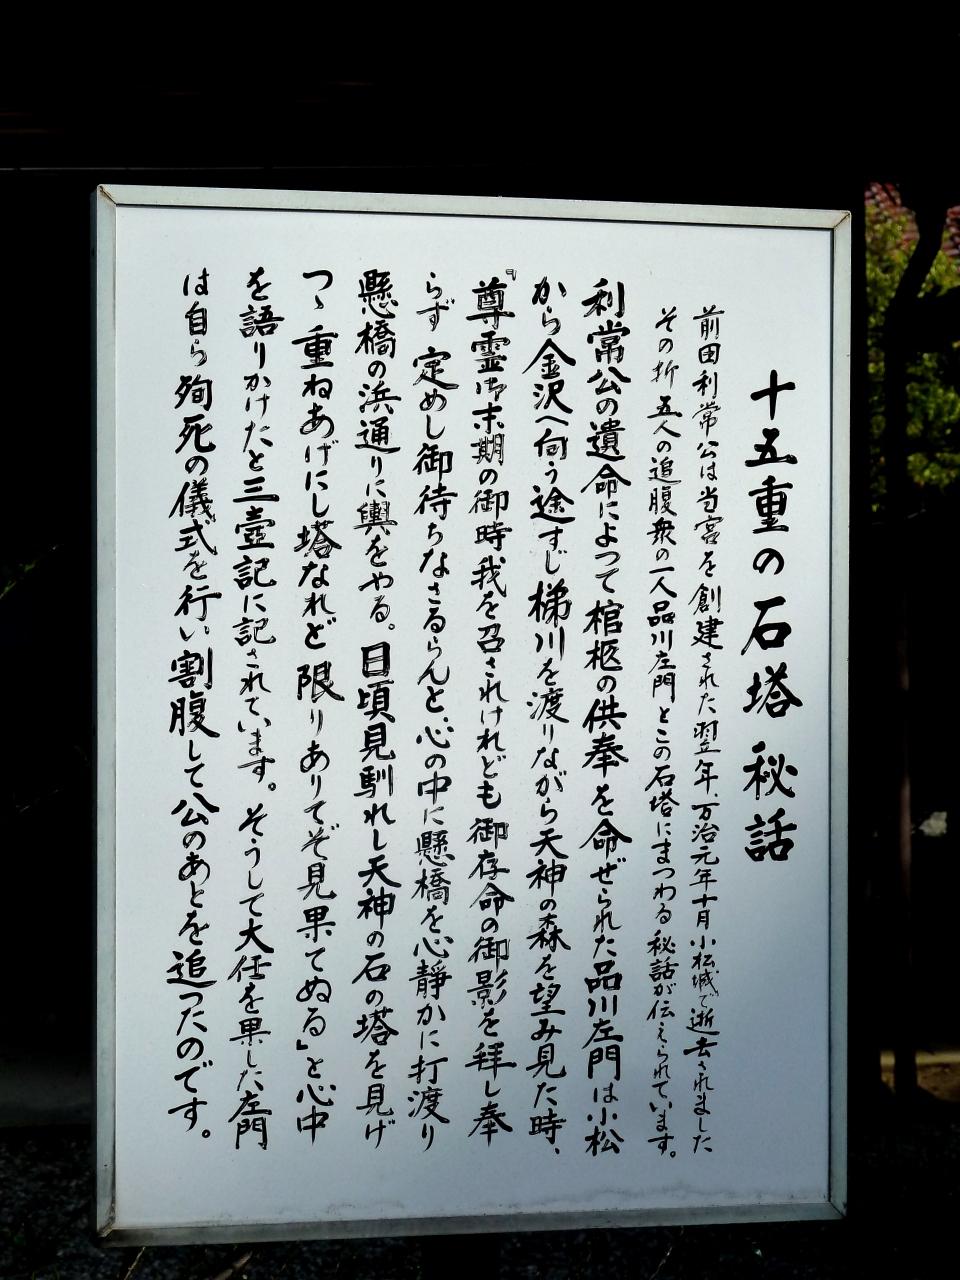 十五重の石塔秘話
前田利常公は当宮を創建された翌年、万治元年十月小松城で逝去されました
その折五人の追腹衆の一人品川左門とこの石塔にまつわる秘話が伝えられています。
利常公の遺命によつて棺柩の供奉を命ぜられた品川左門は小松
から金沢へ向う途すじ梯川を渡りながら天神の森を望み見た時、
『尊霊御末期の御時我を召されけれども御存命の御影を拝し奉
らず定めし御待ちなさるらんと心の中に懸橋を心静かに打渡り
懸橋の浜通りに輿をやる。日頃見馴れし天神の石の塔を見げ
つゝ重ねあげにし塔なれど限りありてぞ見果てぬる」と心中
を語りかけたと三壺記に記されています。そうして大任を果した左門
は自ら殉死の儀式を行い割腹して公のあとを追つたのです。